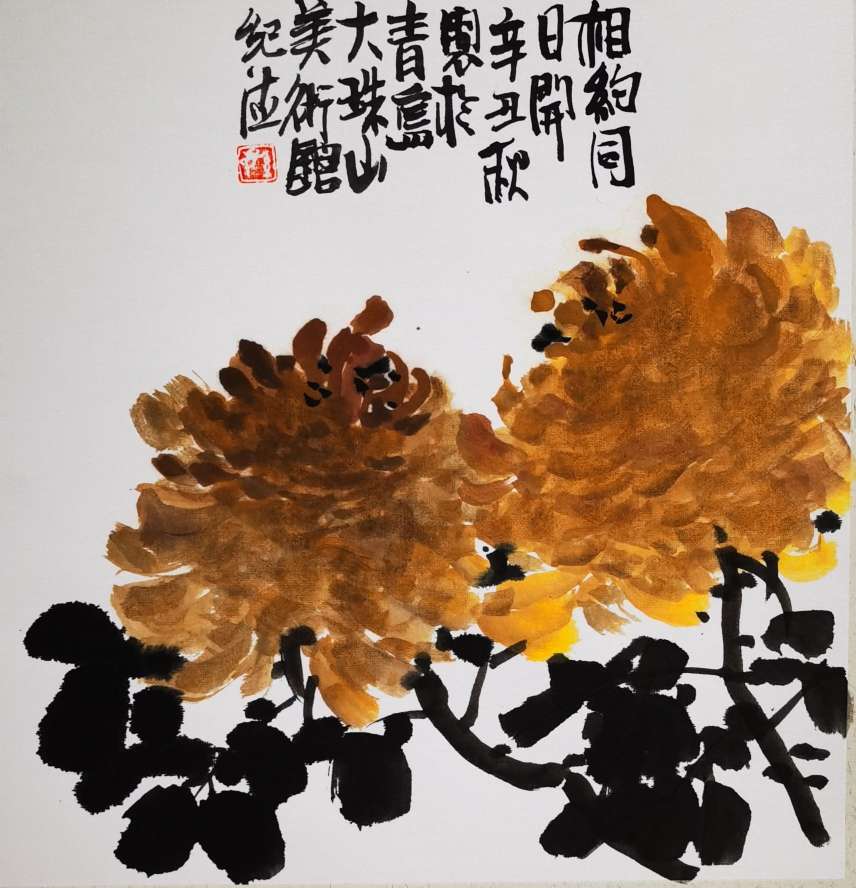 相約同
日開
辛丑秋
製於
青島
大珠山
美術館
紀